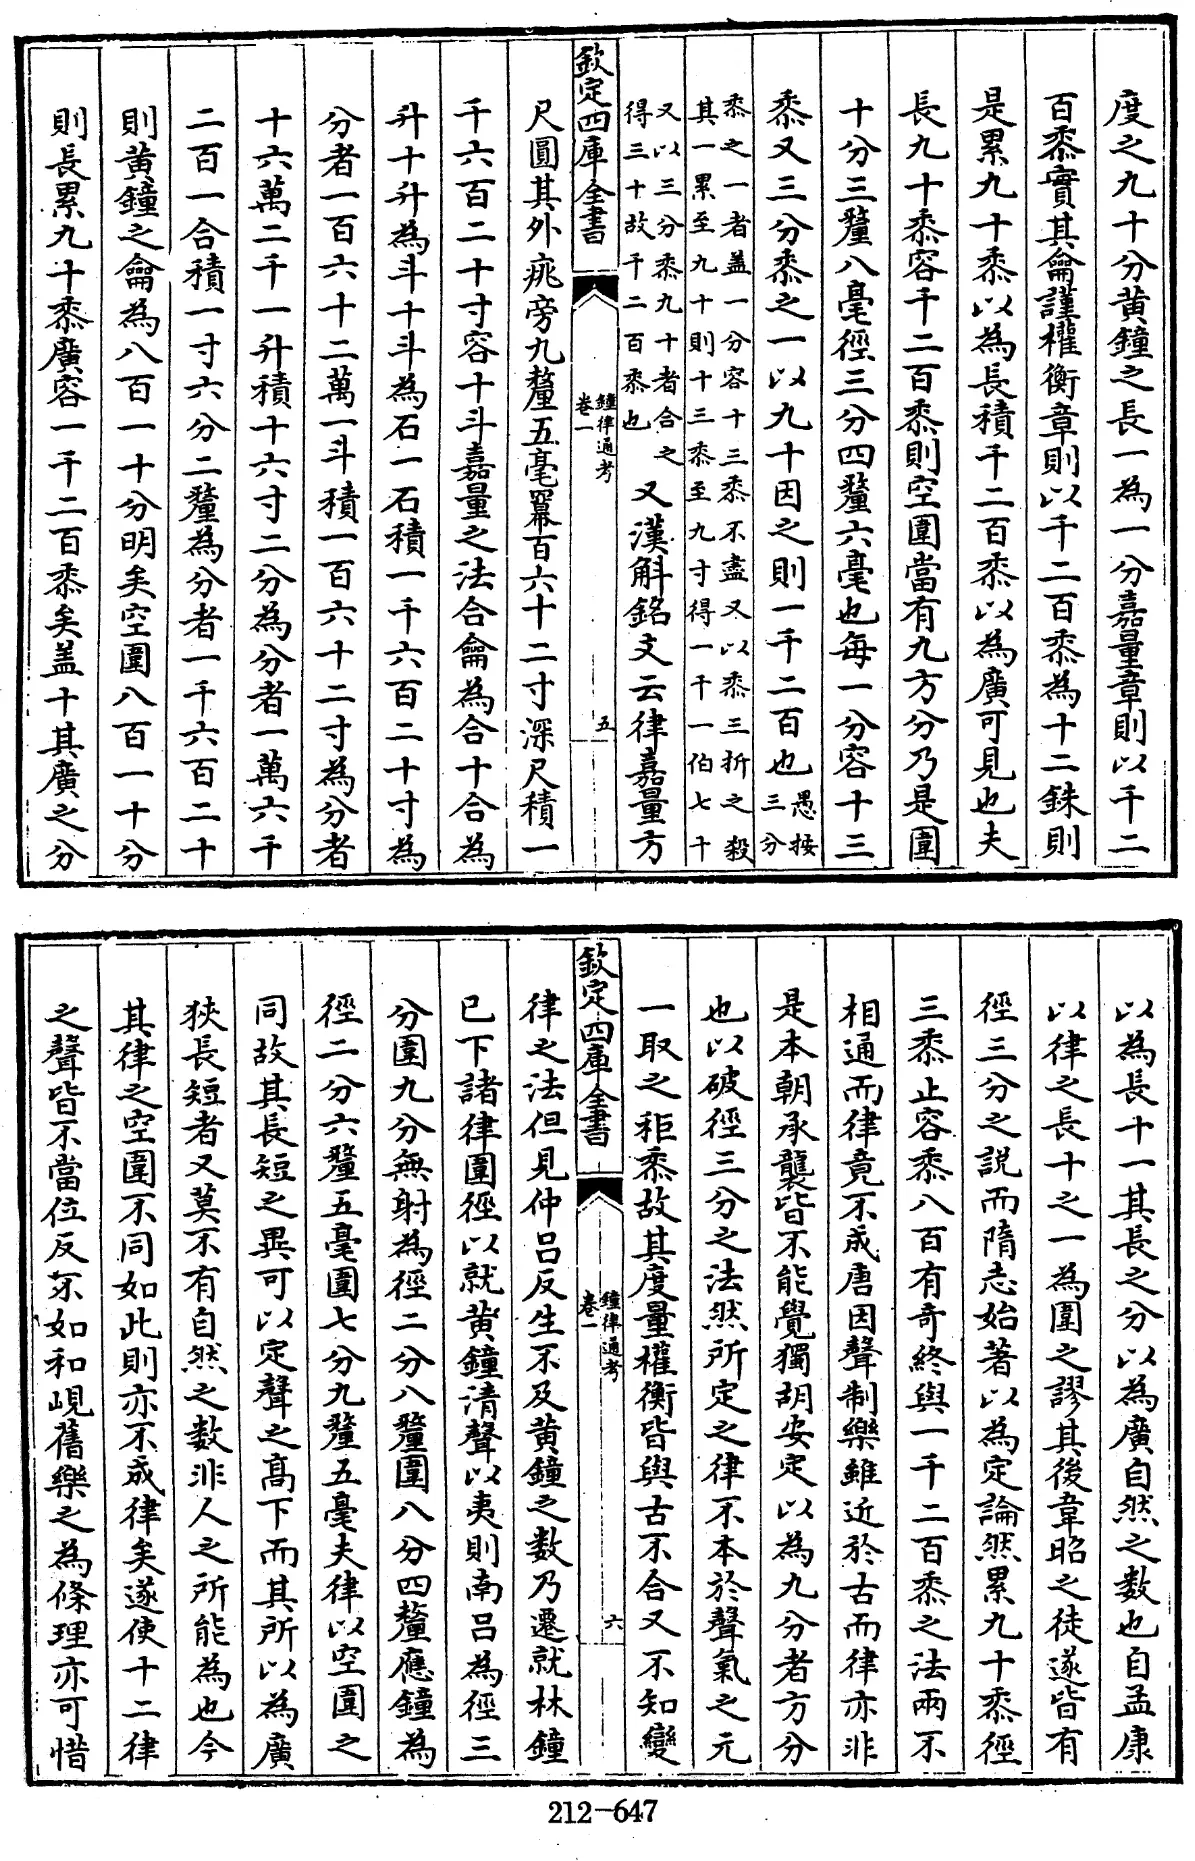 度之九十分黄鐘之長一為一分嘉量章則以千二
百黍實其龠謹權衡章則以千二百黍為十二銖則
是累九十黍以為長積千二百黍以為廣可見也夫
長九十黍容千二百黍則空圍當有九方分乃是圍
十分三釐八毫徑三分四釐六毫也每一分容十三
黍又三分黍之一以九十因之則一千二百也愚按三分
黍之一者盖一分容十三黍不盡又以黍三折之殺
其一累至九十則十三黍至九寸得一千一伯七十
又以三分黍九十者合之
得三十故千二百黍也
又漢斛銘文云律嘉量方
欽定四庫全書
鐘律通考
卷一
五
尺圓其外庣旁九釐五毫冪百六十二寸深尺積一
千六百二十寸容十斗嘉量之法合龠為合十合為
升十升為斗十斗為石一石積一千六百二十寸為
分者一百六十二萬一斗積一百六十二寸為分者
十六萬二千一升積十六寸二分為分者一萬六千
二百一合積一寸六分二釐為分者一千六百二十
則黄鐘之龠為八百一十分明矣空圍八百一十分
則長累九十黍廣容一千二百黍矣盖十其廣之分
以為長十一其長之分以為廣自然之數也自孟康
以律之長十之一為圍之謬其後韋昭之徒遂皆有
徑三分之説而隋志始著以為定論然累九十黍徑
三黍止容黍八百有奇終與一千二百黍之法兩不
相通而律竟不成唐因聲制樂雖近於古而律亦非
是本朝承襲皆不能覺獨胡安定以為九分者方分
也以破徑三分之法然所定之律不本於聲氣之元
一取之秬黍故其度量權衡皆與古不合又不知變
欽定四庫全書
鐘律通考
卷一
六
律之法但見仲吕反生不及黄鐘之數乃遷就林鐘
已下諸律圍徑以就黄鐘清聲以夷則南吕為徑三
分圍九分無射為徑二分八釐圍八分四釐應鐘為
徑二分六釐五毫圍七分九釐五毫夫律以空圍之
同故其長短之異可以定聲之髙下而其所以為廣
狹長短者又莫不有自然之數非人之所能為也今
其律之空圍不同如此則亦不成律矣遂使十二律
之聲皆不當位反不如和峴舊樂之為條理亦可惜
212-647